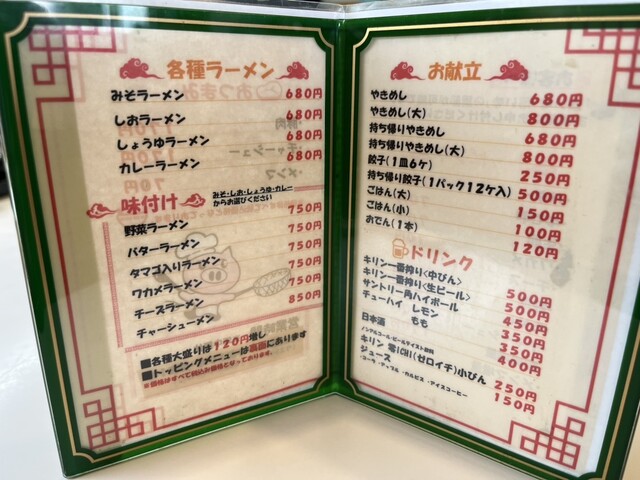 各種ラーメン
みそラーメン 680円
しおラーメン 680円
しょうゆラーメン 680円
カレーラーメン 680円
味付け
みそ・しお・しょうゆ・カレー
からお選びください
野菜ラーメン 750円
バターラーメン 750円
タマゴ入りラーメン 750円
ワカメラーメン 750円
チーズラーメン 750円
チャーシューメン 850円
■各種大盛りは120円増し
■トッピングメニューは裏面にあります
※価格はすべて税込お値段となっております
お献立
やきめし 680円
やきめし(大) 800円
持ち帰りやきめし 680円
持ち帰りやきめし(大) 800円
餃子(1皿6ケ) 250円
持ち帰り餃子(1パック12ケ入) 500円
ごはん(大) 150円
ごはん(小) 100円
おでん(1本) 120円
ドリンク
キリン一番搾り<中びん> 500円
キリン一番搾り<生ビール> 500円
サントリー角ハイボール 450円
チューハイ レモン 350円
もも 350円
日本酒 400円
ノンアルコール・ビールテイスト飲料
キリン 零ICHI(ゼロイチ)小びん 250円
ジュース 150円
・コーラ・アップル・カルピス・アイスコーヒー